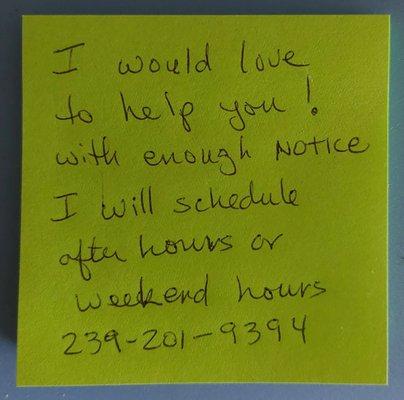 I would love
to help you!
with enough Notice
I will schedule
after hours or
weekend hours
239-201-9394